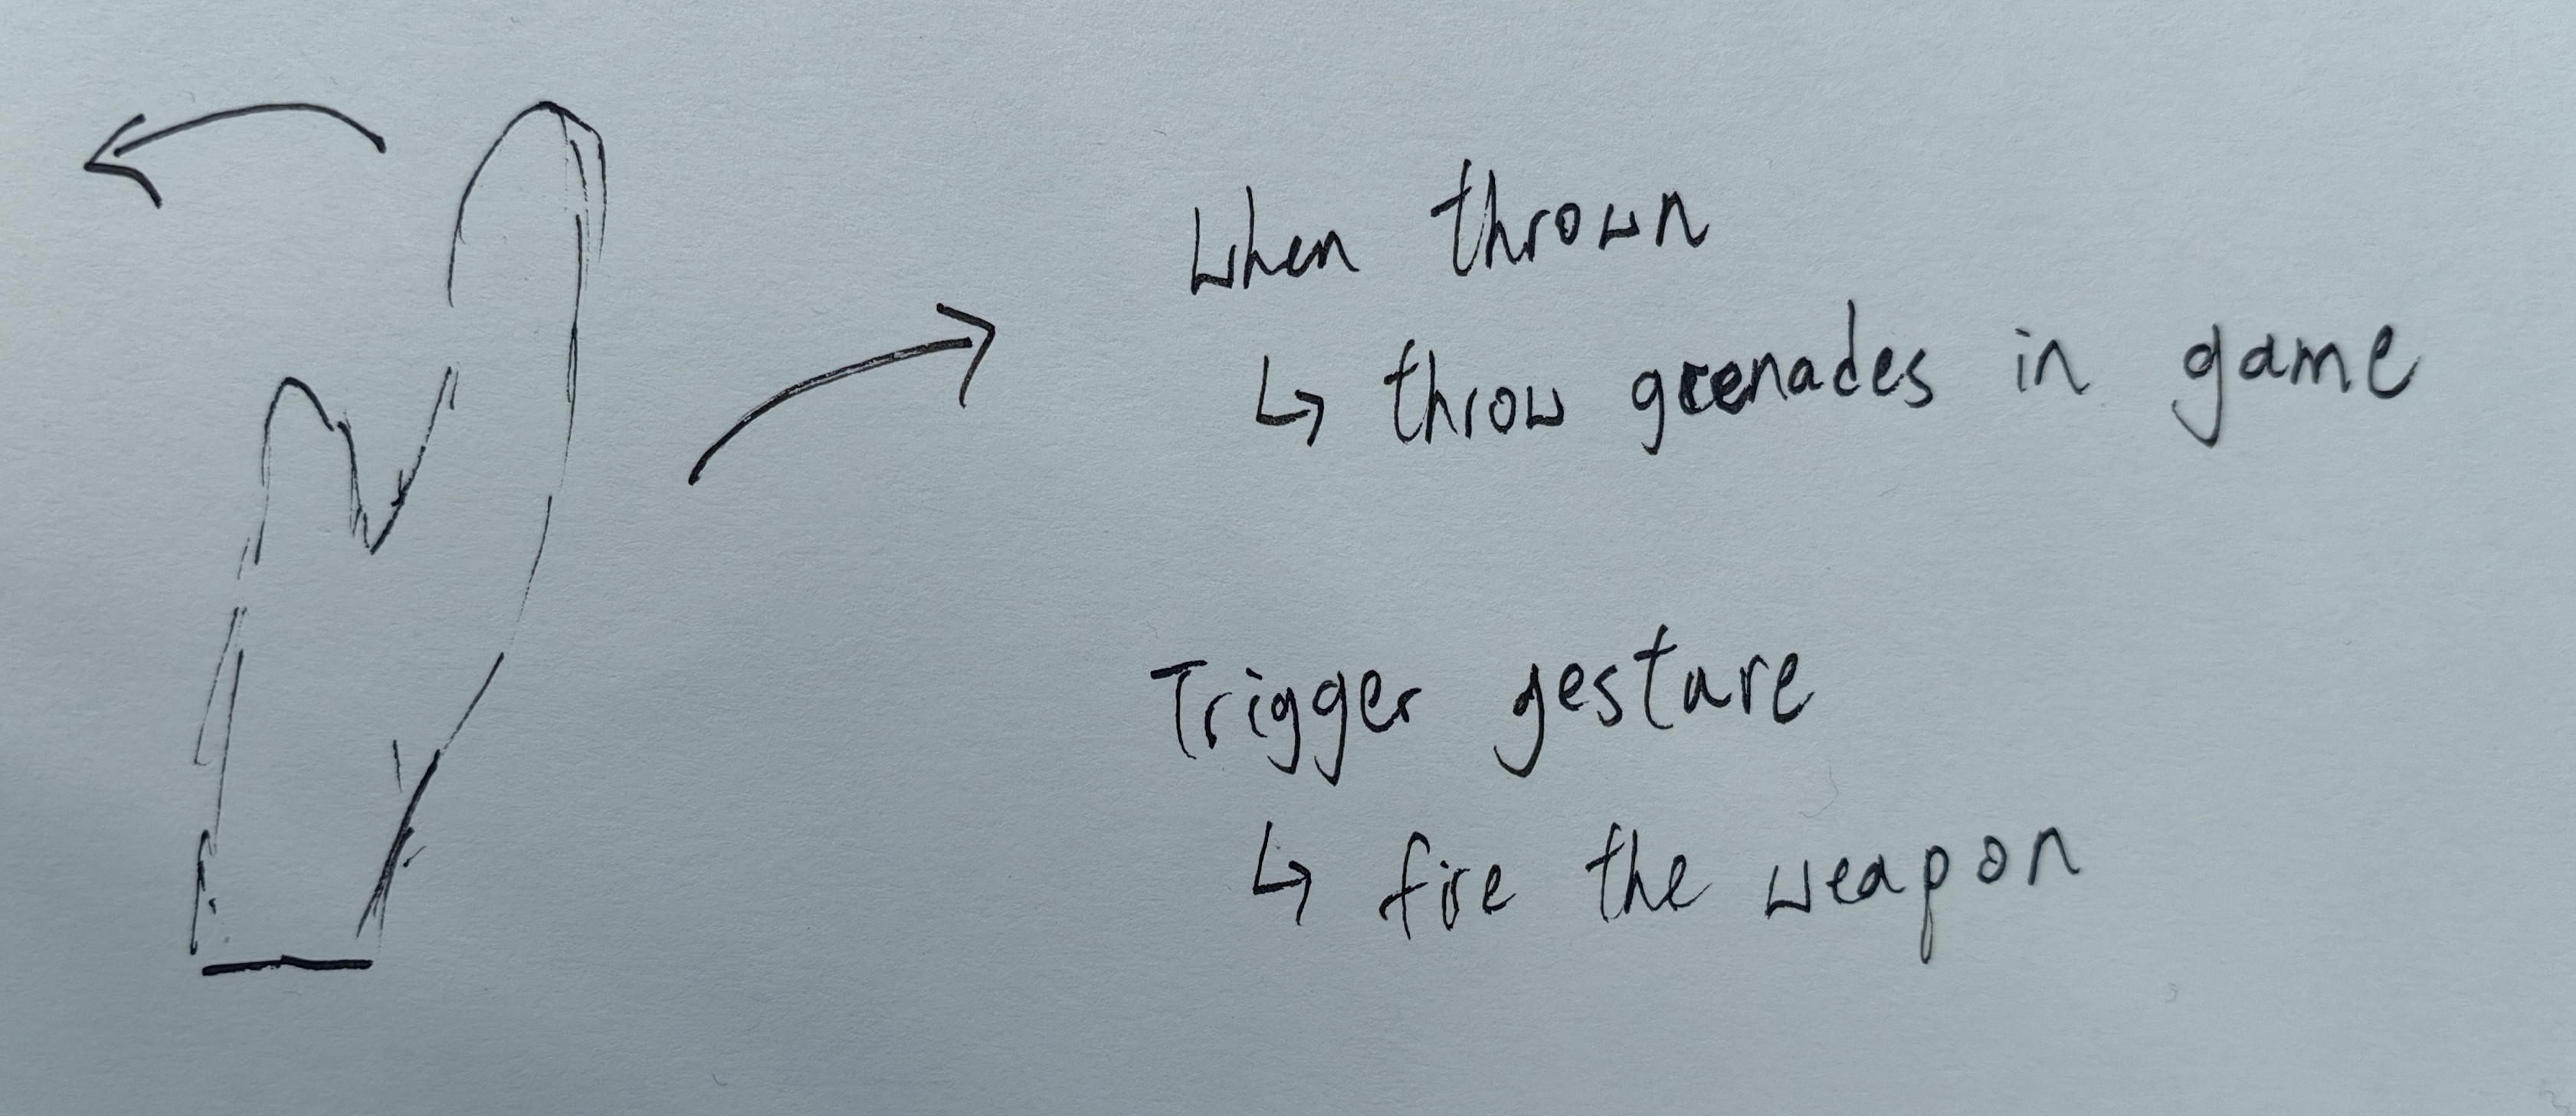 When thrown
↳ throw grenades in game
Trigger gesture
↳ fire the weapon